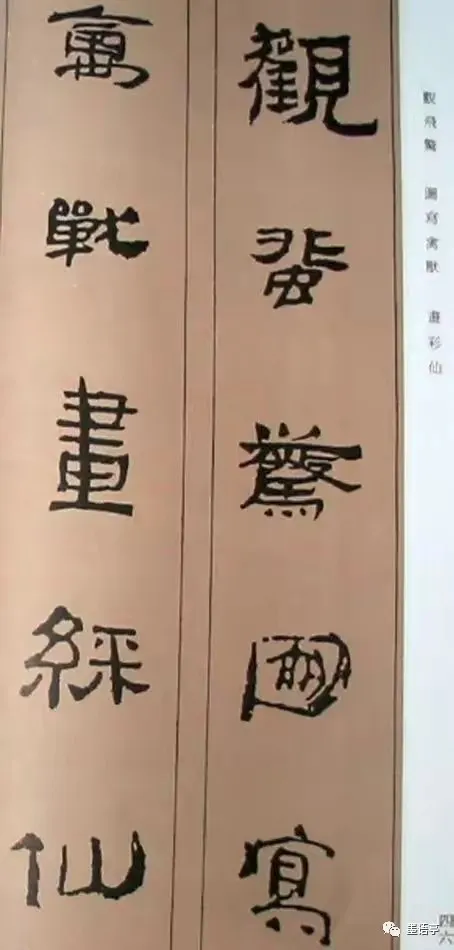 觀蜚驚圖寫
禽獸畫綵仙
觀飛驚 圖寫禽獸 畫彩仙
四六
墨语亭